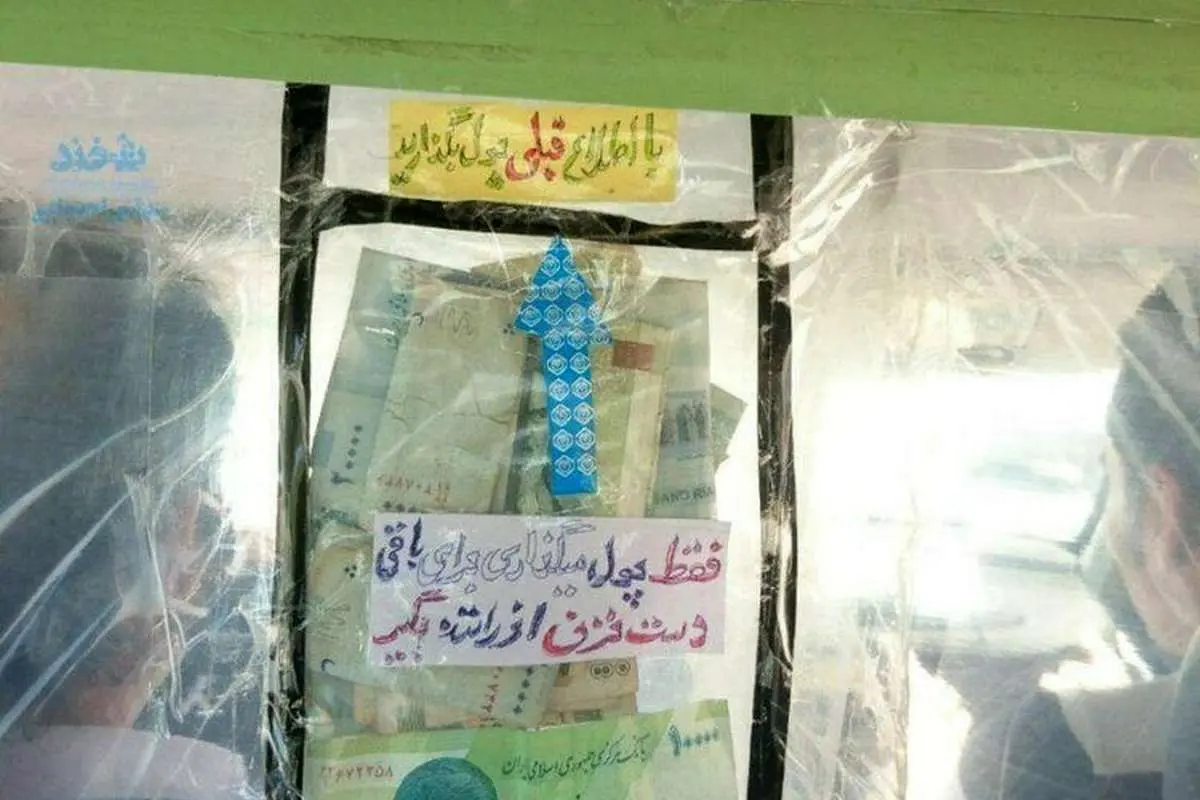 شخند
با اطلاع قبلی پول بگذارید
۲۰۰۰۰
RIA
فقط پول میگذاری برای باقی
دست نزن از راننده بگیر
۱۰۰۰۰
بانک مرکزی جمهوری اسلامی ایران